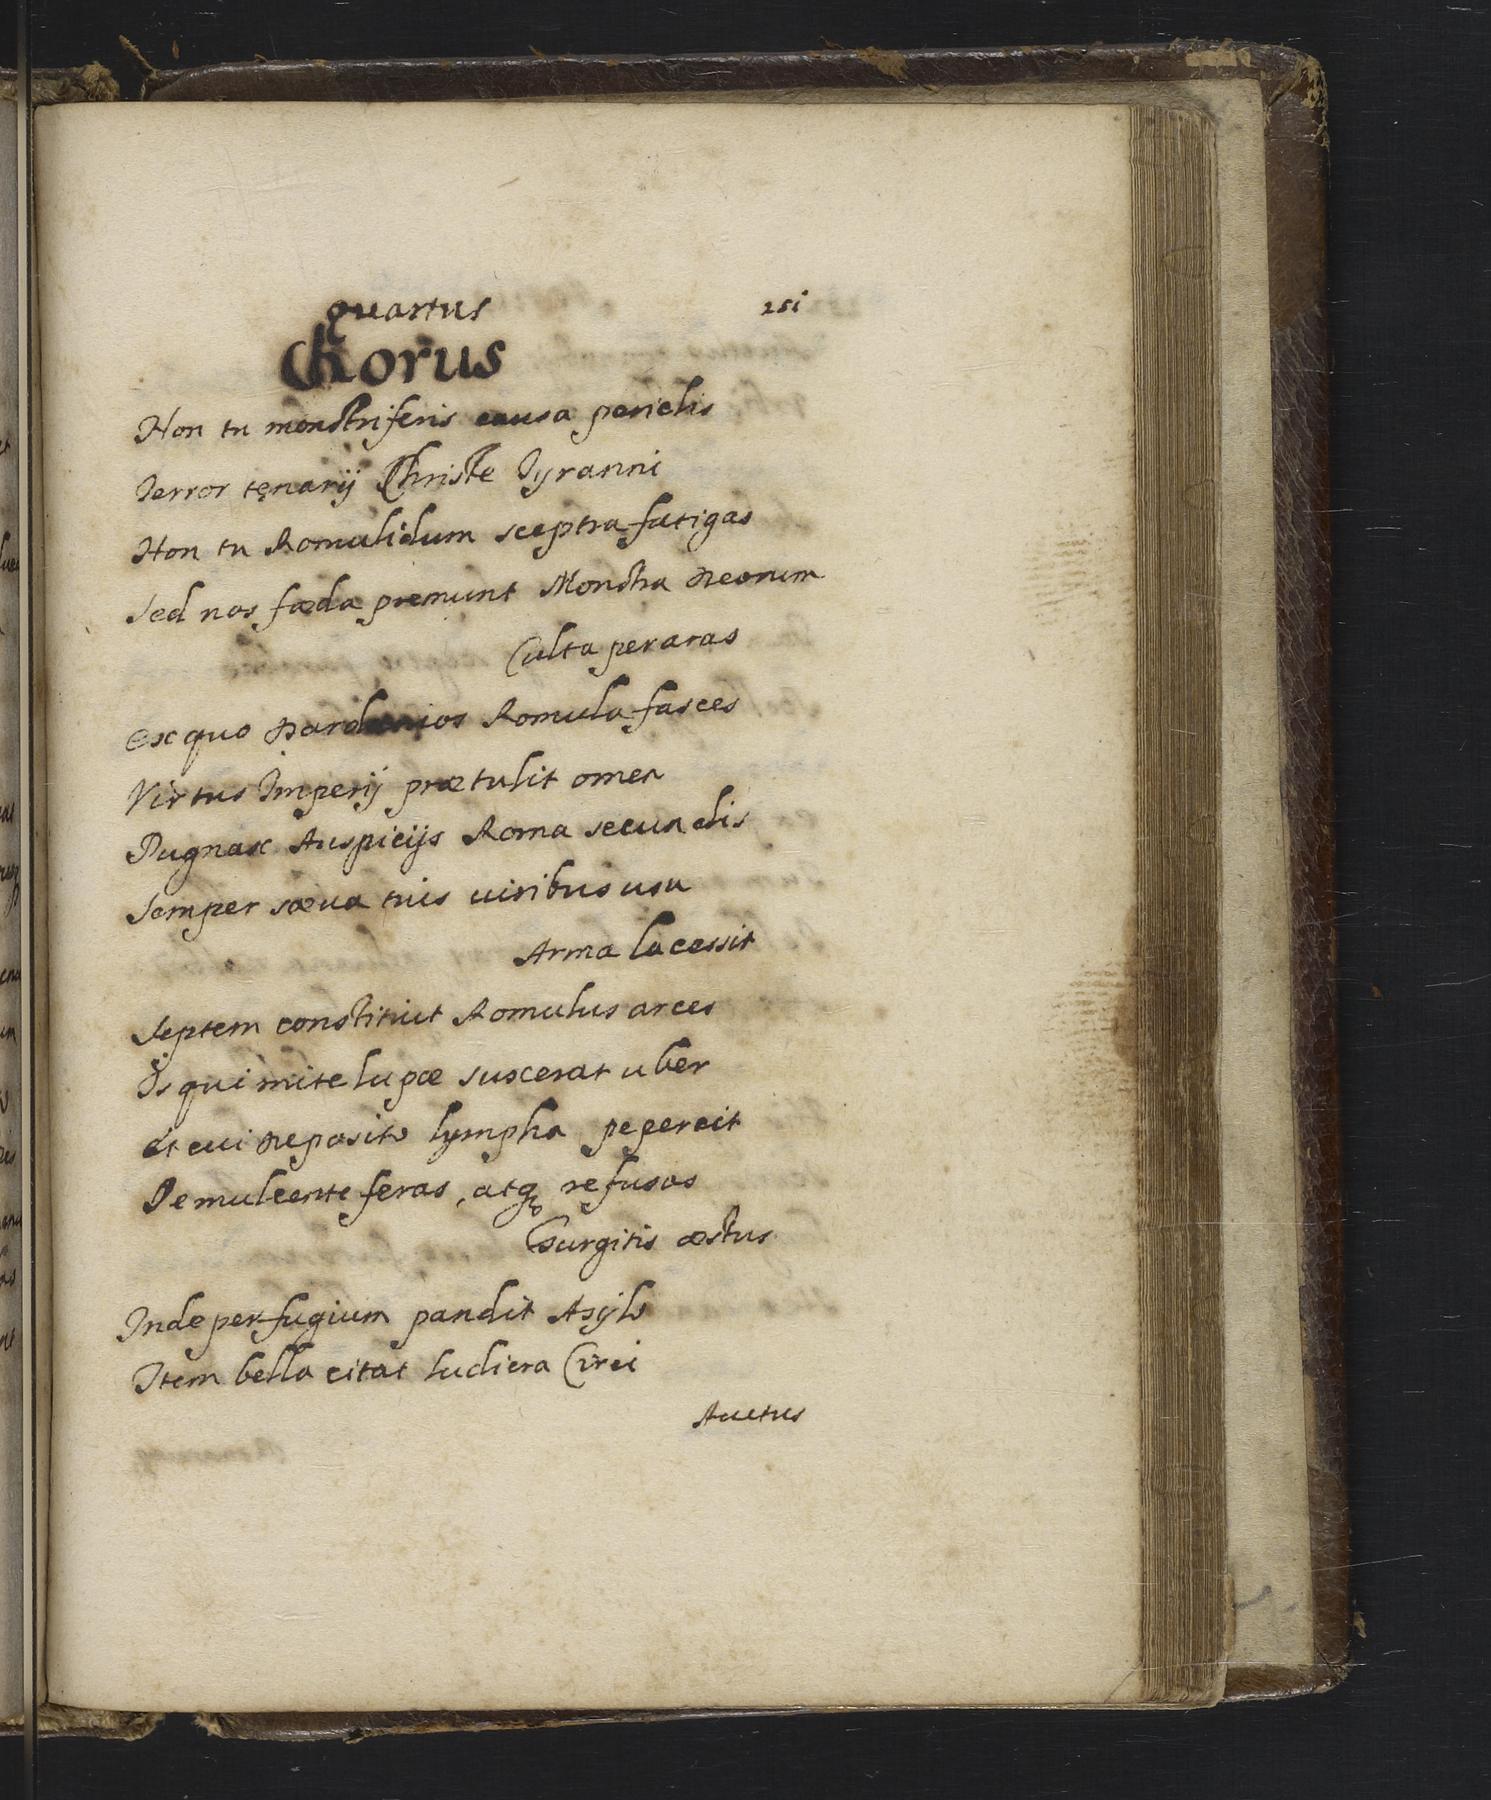 quartus 251
Chorus
Non tu monstriferis causa periclis
Terror tęnarij Christe Tyranni
Non tu Romulidum sceptra fatigas
Sed nos fœda premunt Monstra Deorum
Culta per aras
Ex quo Dardanios Romula fasces
Virtus Imperij prætulit omen
Pugnax Auspicijs Roma secundis
Semper sæua tuis uiribus usa
Arma lacessit
Septem constituit Romulus arces
Is qui mite lupæ suxerat uber
Et cui deposito lympha pepercit
Demulcente feras, atq refusos
Gurgitis æstus
Inde perfugium pandit Asylo
Item bella citat ludicra Circi
Auctus